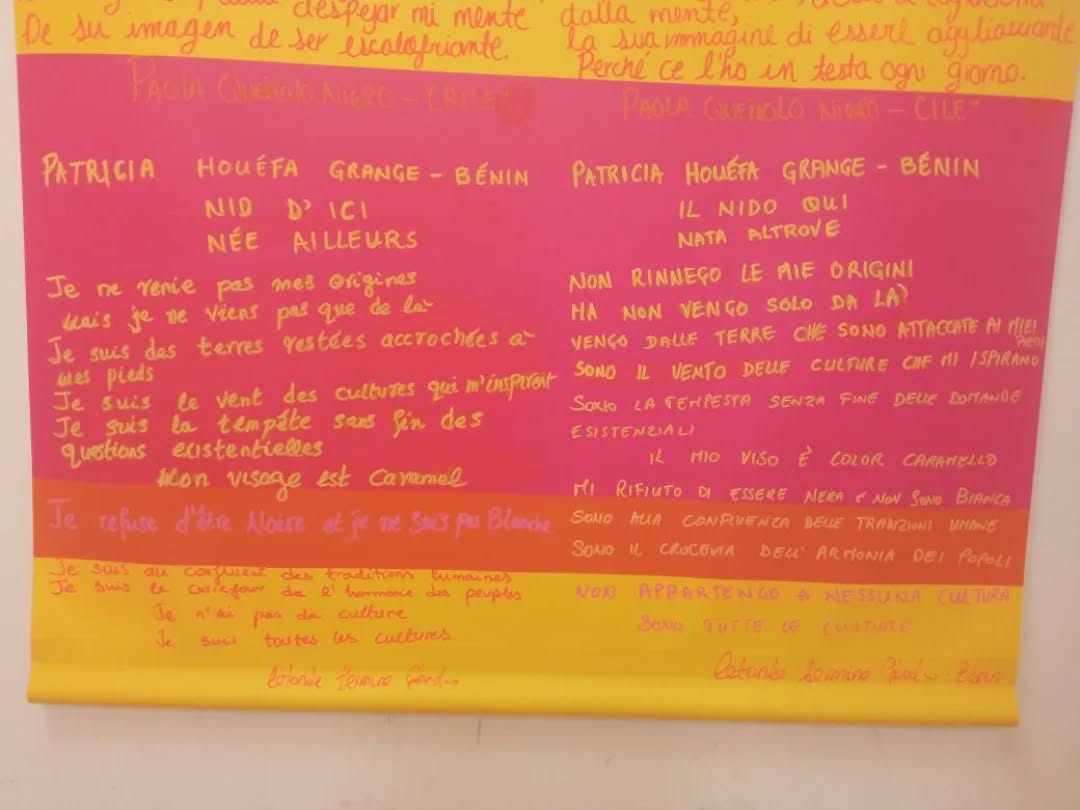 despejar mi mente
De su imagen de ser escalofriante.
PAOLA QUEIROLO NIGRO - CHILE*
PATRICIA HOUÉFA GRANGE - BÉNIN
NID D'ICI
NÉE AILLEURS
Je ne renie pas mes origines
Mais je ne viens pas que de là
Je suis des terres restées accrochées à
mes pieds
Je suis le vent des cultures qui m'inspirent
Je suis la tempête sans fin des
questions existentielles
Mon visage est Caramel
Je refuse d'être Noire et je ne suis pas Blanche
Je suis au confluent des traditions humaines
Je suis le carrefour de l'harmonie des peuples
Je n'ai pas de culture
Je suis toutes les cultures
dalla mente,
la sua immagine di essere agghiacciante
Perché ce l'ho in testa ogni giorno.
PAOLA QUEIROLO NIGRO - CILE*
PATRICIA HOUÉFA GRANGE - BÉNIN
IL NIDO QUI
NATA ALTROVE
NON RINNEGO LE MIE ORIGINI
MA NON VENGO SOLO DA LÀ
VENGO DALLE TERRE CHE SONO ATTACCATE AI MIEI
PIEDI
SONO IL VENTO DELLE CULTURE CHE MI ISPIRANO
SONO LA TEMPESTA SENZA FINE DELLE DOMANDE
ESISTENZIALI
IL MIO VISO È COLOR CARAMELLO
MI RIFIUTO DI ESSERE NERA E NON SONO BIANCA
SONO ALLA CONFLUENZA DELLE TRADIZIONI UMANE
SONO IL CROCEVIA DELL'ARMONIA DEI POPOLI
NON APPARTENGO A NESSUNA CULTURA
SONO TUTTE LE CULTURE